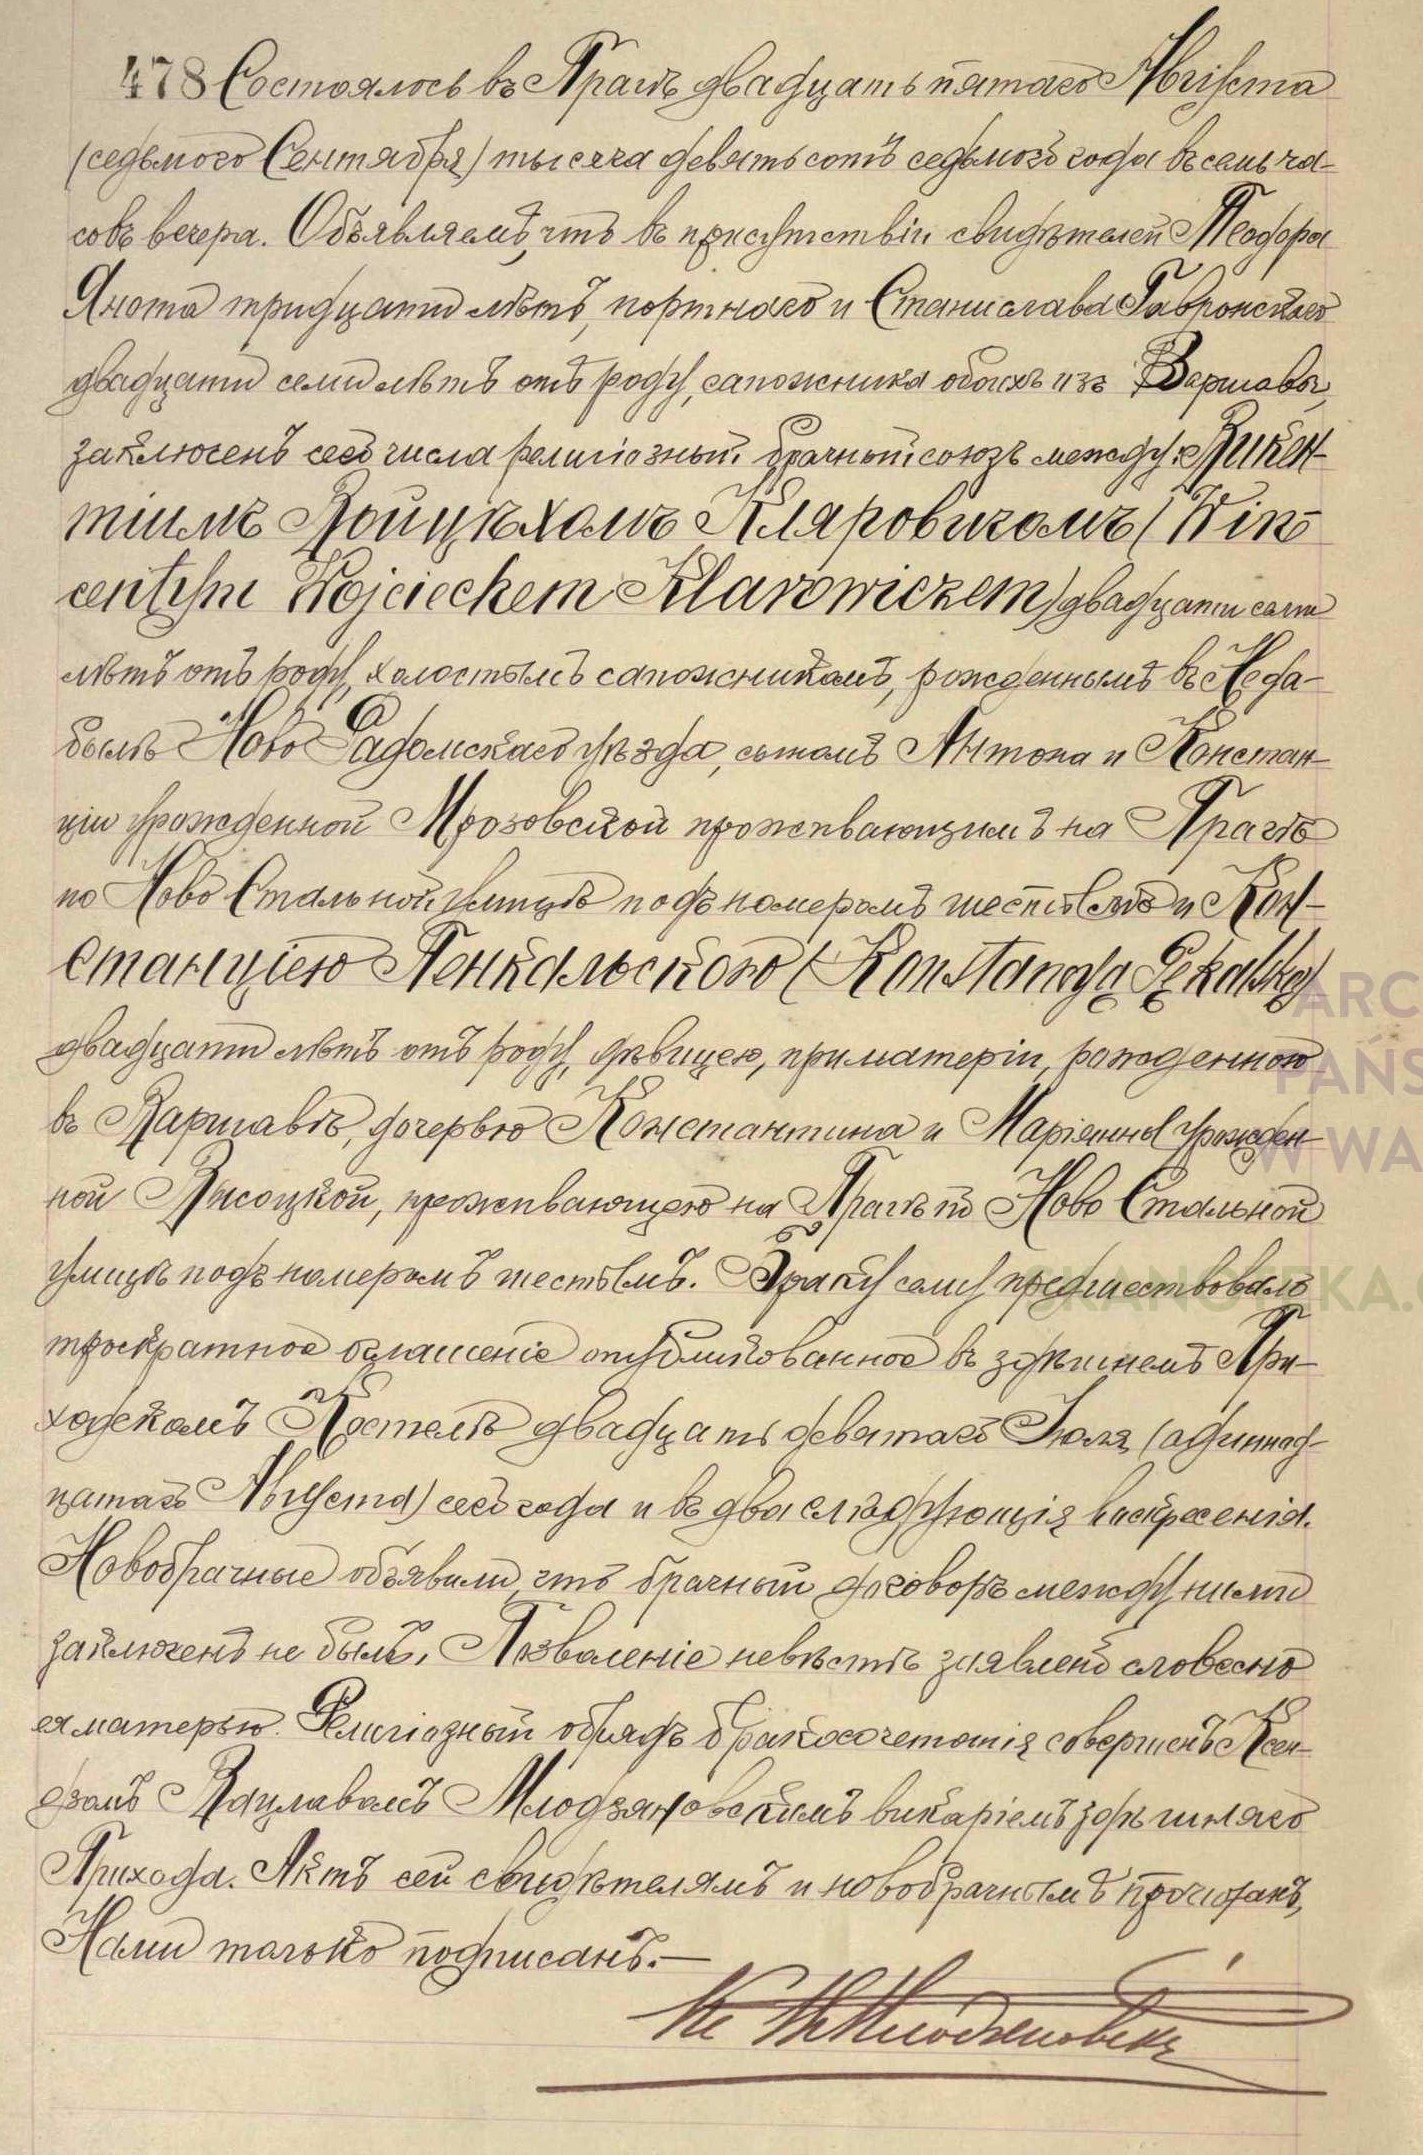 478 Состоялось въ Прагѣ двадцать пятаго Августа
(седьмого Сентября) тысяча девятьсотъ седьмого года въ семь ча-
совъ вечера. Объявляемъ, что въ присутствіи свидѣтелей Теодора
Янота тридцати лѣтъ, портнаго и Станислава Гавронскаго
двадцати семи лѣтъ отъ роду, сапожника обоихъ изъ Варшавы,
заключенъ сего числа религіозный брачный союзъ между: Викен-
тіимъ Войцѣхомъ Кляровичомъ (Win-
centym Wojciechem Klarowiczem) двадцати семи
лѣтъ отъ роду, холостымъ сапожникомъ, рожденнымъ въ
Ново Радомскаго уѣзда, сыномъ Антона и Констан-
ціи урожденной Мрозовской проживающимъ на Прагѣ
по Ново Стальной улицѣ подъ номеромъ шестымъ и Кон-
станціею Пенкальскою (Konstancyą Pękalską)
двадцати лѣтъ отъ роду, дѣвицею, при матери, рожденною
въ Варшавѣ, дочерью Константина и Маріянны урожден-
ной Высоцкой, проживающею на Прагѣ по Ново Стальной
улицѣ подъ номеромъ шестымъ. Браку сему предшествовало
троекратное оглашеніе опубликованное въ здѣшнемъ При-
ходскомъ Костелѣ двадцать девятаго Іюля (одиннад-
цатаго Августа) сего года и въ два слѣдующія воскресенія.
Новобрачные объявили, что брачный договоръ между ними
заключенъ не былъ. Позволеніе невѣстѣ заявлено словесно
ея матерью. Религіозный обрядъ бракосочетанія совершенъ Ксен-
дзомъ Вацлавомъ Млодзяновскимъ викаріемъ здѣшняго
Прихода. Актъ сей свидѣтелямъ и новобрачнымъ прочитанъ,
Нами только подписанъ.—
Кс Млодзяновскі
ARC
PAŃS
W WA
SKANOTEKA.